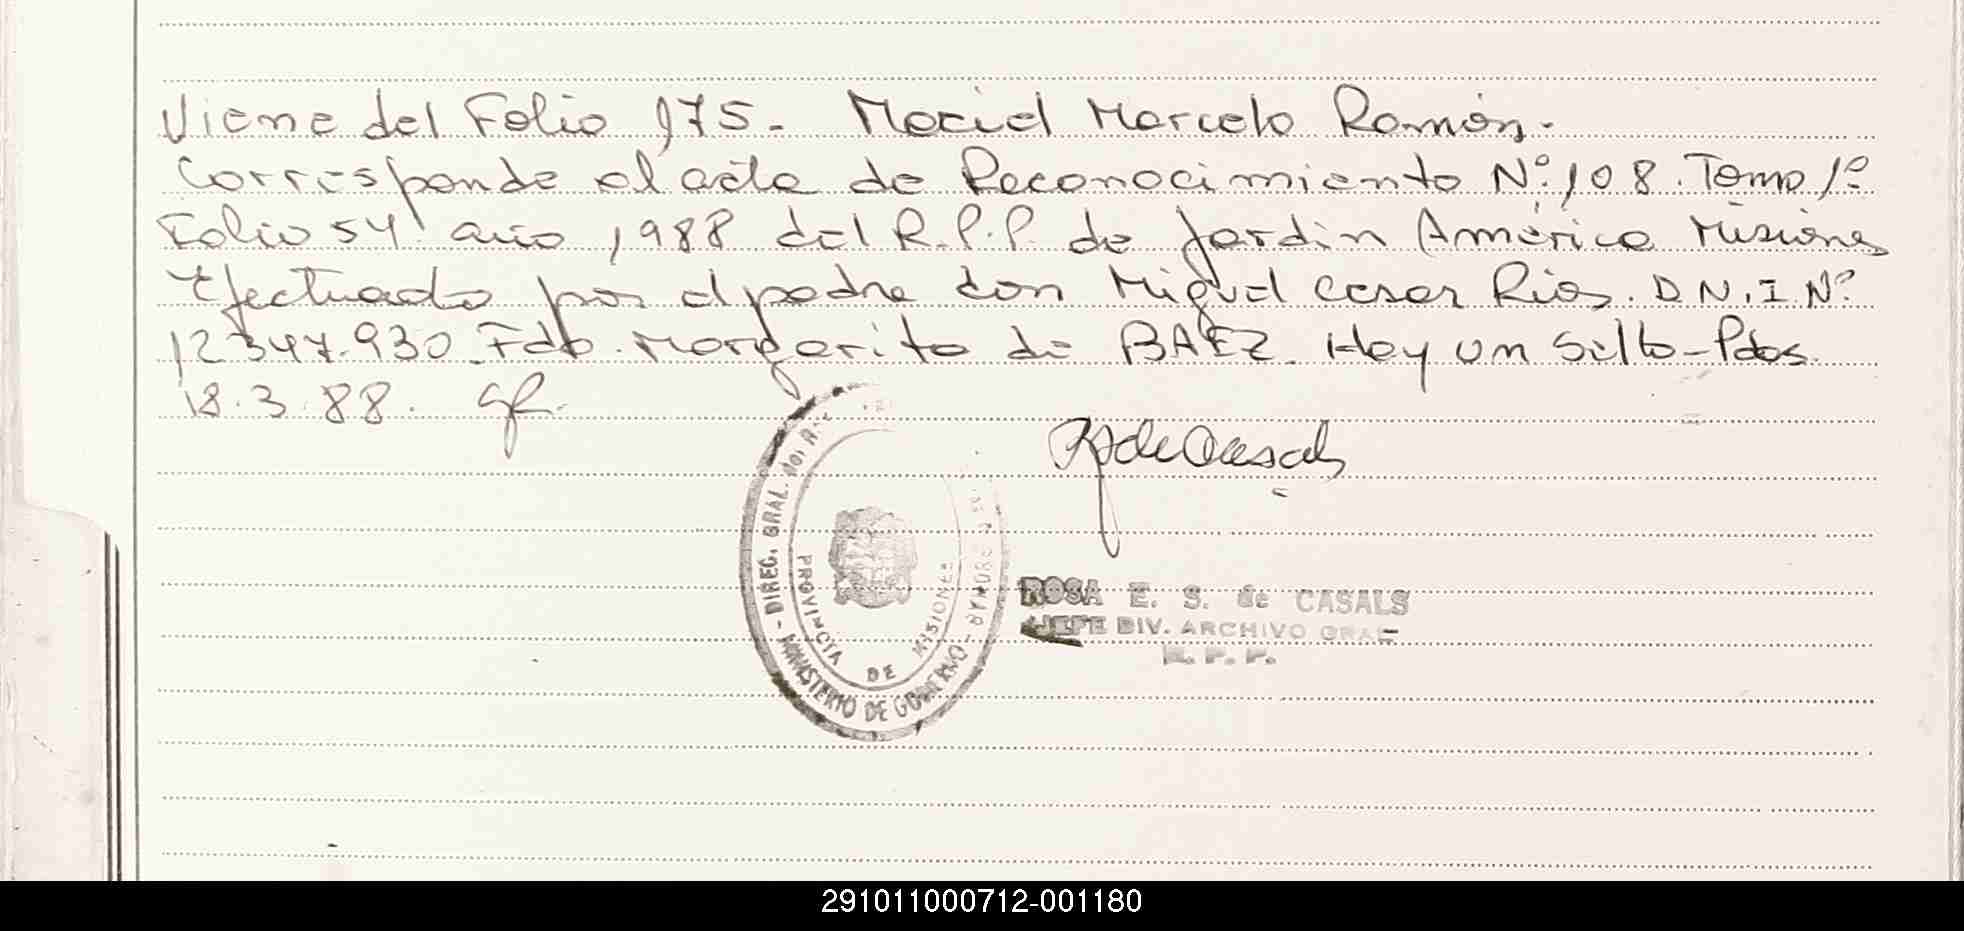 Viene del Folio 175. Maciel Marcelo Ramón.
Corresponde al acta de Reconocimiento Nº 108. Tomo 1º
Folio 54 año 1988 del R.P.P. de Jardin América Misiones
Efectuado por el padre don Miguel Cesar Rios. D.N.I. Nº
12347.930. Fdo. Margarita de BAEZ. Hay un Sello - Pdas.
18.3.88.
R S de Casals
- DIREG. GRAL.
- MINISTERIO DE GOBIERNO -
PROVINCIA DE MISIONES
ROSA E. S. de CASALS
JEFE DIV. ARCHIVO GRAL
R. P. P.
291011000712-001180